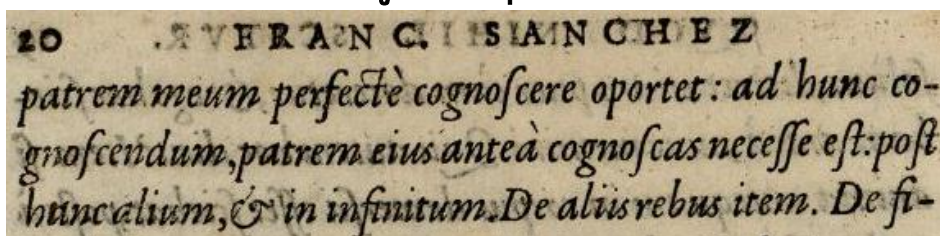 20 FRANC. SANCHEZ
patrem meum perfectè cognoſcere oportet: ad hunc co-
gnoſcendum, patrem eius anteà cognoſcas neceſſe eſt: poſt
hunc alium, & in infinitum. De aliis rebus item. De fi-